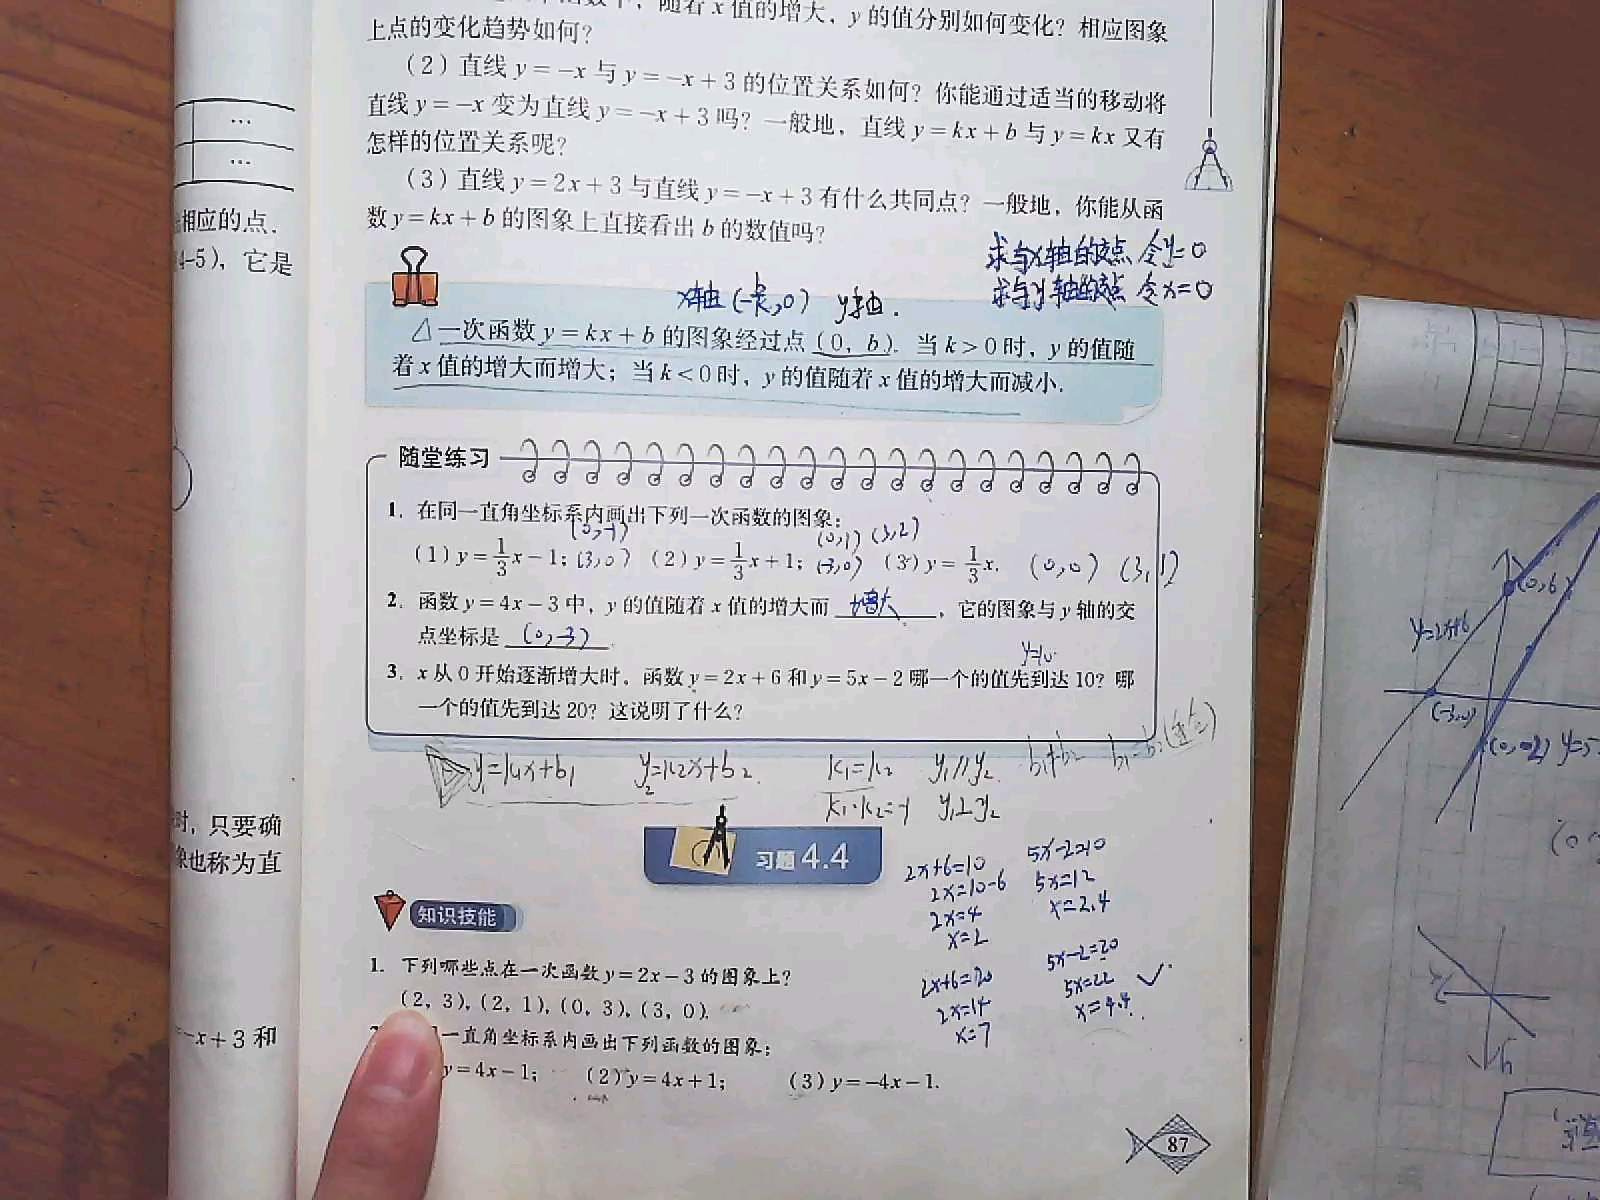 随着 x 值的增大，y 的值分别如何变化？相应图象
上点的变化趋势如何？
（2）直线 y=-x 与 y=-x+3 的位置关系如何？你能通过适当的移动将
直线 y=-x 变为直线 y=-x+3 吗？一般地，直线 y=kx+b 与 y=kx 又有
怎样的位置关系呢？
（3）直线 y=2x+3 与直线 y=-x+3 有什么共同点？一般地，你能从函
数 y=kx+b 的图象上直接看出 b 的数值吗？
求与x轴的交点 令y=0
求与y轴的交点 令x=0
x轴(-b/k,0) y轴.
△一次函数 y=kx+b 的图象经过点 (0, b). 当 k>0 时，y 的值随
着 x 值的增大而增大；当 k<0 时，y 的值随着 x 值的增大而减小.
随堂练习
1. 在同一直角坐标系内画出下列一次函数的图象：
(0,-1) (0,1) (3,2)
（1）y=1/3x-1; (3,0) （2）y=1/3x+1; (-3,0) （3）y=1/3x. (0,0) (3,1)
2. 函数 y=4x-3 中，y 的值随着 x 值的增大而 增大，它的图象与 y 轴的交
点坐标是 (0,-3)
y=10
3. x 从 0 开始逐渐增大时，函数 y=2x+6 和 y=5x-2 哪一个的值先到达 10？哪
一个的值先到达 20？这说明了什么？
y=k1x+b1 y2=k2x+b2 k1=k2 y1//y2 b1≠b2
k1·k2=-1 y1⊥y2
习题 4.4
2x+6=10 5x-2=10
2x=10-6 5x=12
2x=4 x=2.4
x=2
2x+6=20 5x-2=20
2x=14 5x=22
x=7 x=4.4
知识技能
1. 下列哪些点在一次函数 y=2x-3 的图象上？
(2, 3), (2, 1), (0, 3), (3, 0).
一直角坐标系内画出下列函数的图象：
y=4x-1; （2）y=4x+1; （3）y=-4x-1.
87
…
…
相应的点.
4-5)，它是
时，只要确
像也称为直
-x+3 和
(0,6)
y=2x+6
(-3,0)